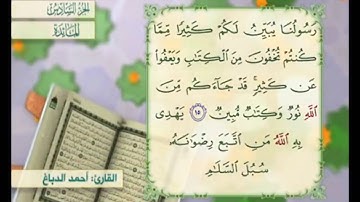 الجزء السادس
المائدة
رَسُولُنَا يُبَيِّنُ لَكُمْ كَثِيرًا مِّمَّا
كُنتُمْ تُخْفُونَ مِنَ الْكِتَابِ وَيَعْفُوا
عَن كَثِيرٍ ۚ قَدْ جَاءَكُم مِّنَ
اللَّهِ نُورٌ وَكِتَابٌ مُّبِينٌ ١٥ يَهْدِي
بِهِ اللَّهُ مَنِ اتَّبَعَ رِضْوَانَهُ
سُبُلَ السَّلَامِ
القارئ: أحمد الدباغ